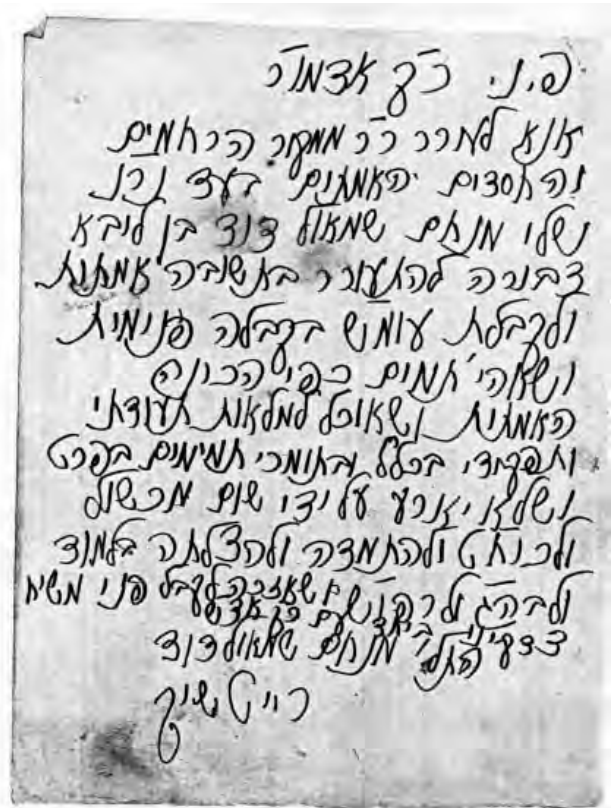 פ.נ. כ״ק אדמו״ר
אנא לעורר ר״ר ממקור הרחמים
והחסדים האמתים בעד נרנ
שלי מנחם שמאול דוד בן ליבא
דבורה להתעורר בתשובה אמתית
ולקבלת עומש בקבלה פנימית
ושאהי׳ תמים כפי הכונה
האמתית ושאוכל למלאות תעודתי
ותפקידי בכלל ובתומכי תמימים בפרט
ושלא יארע על ידי שום מכשול
ולהתמדה ולהצלחה בלמוד
שאזכה לקבל פני משיח
צדקינו ביחד עם
הנ״ל מנחם שמאול דוד
רייטשיק